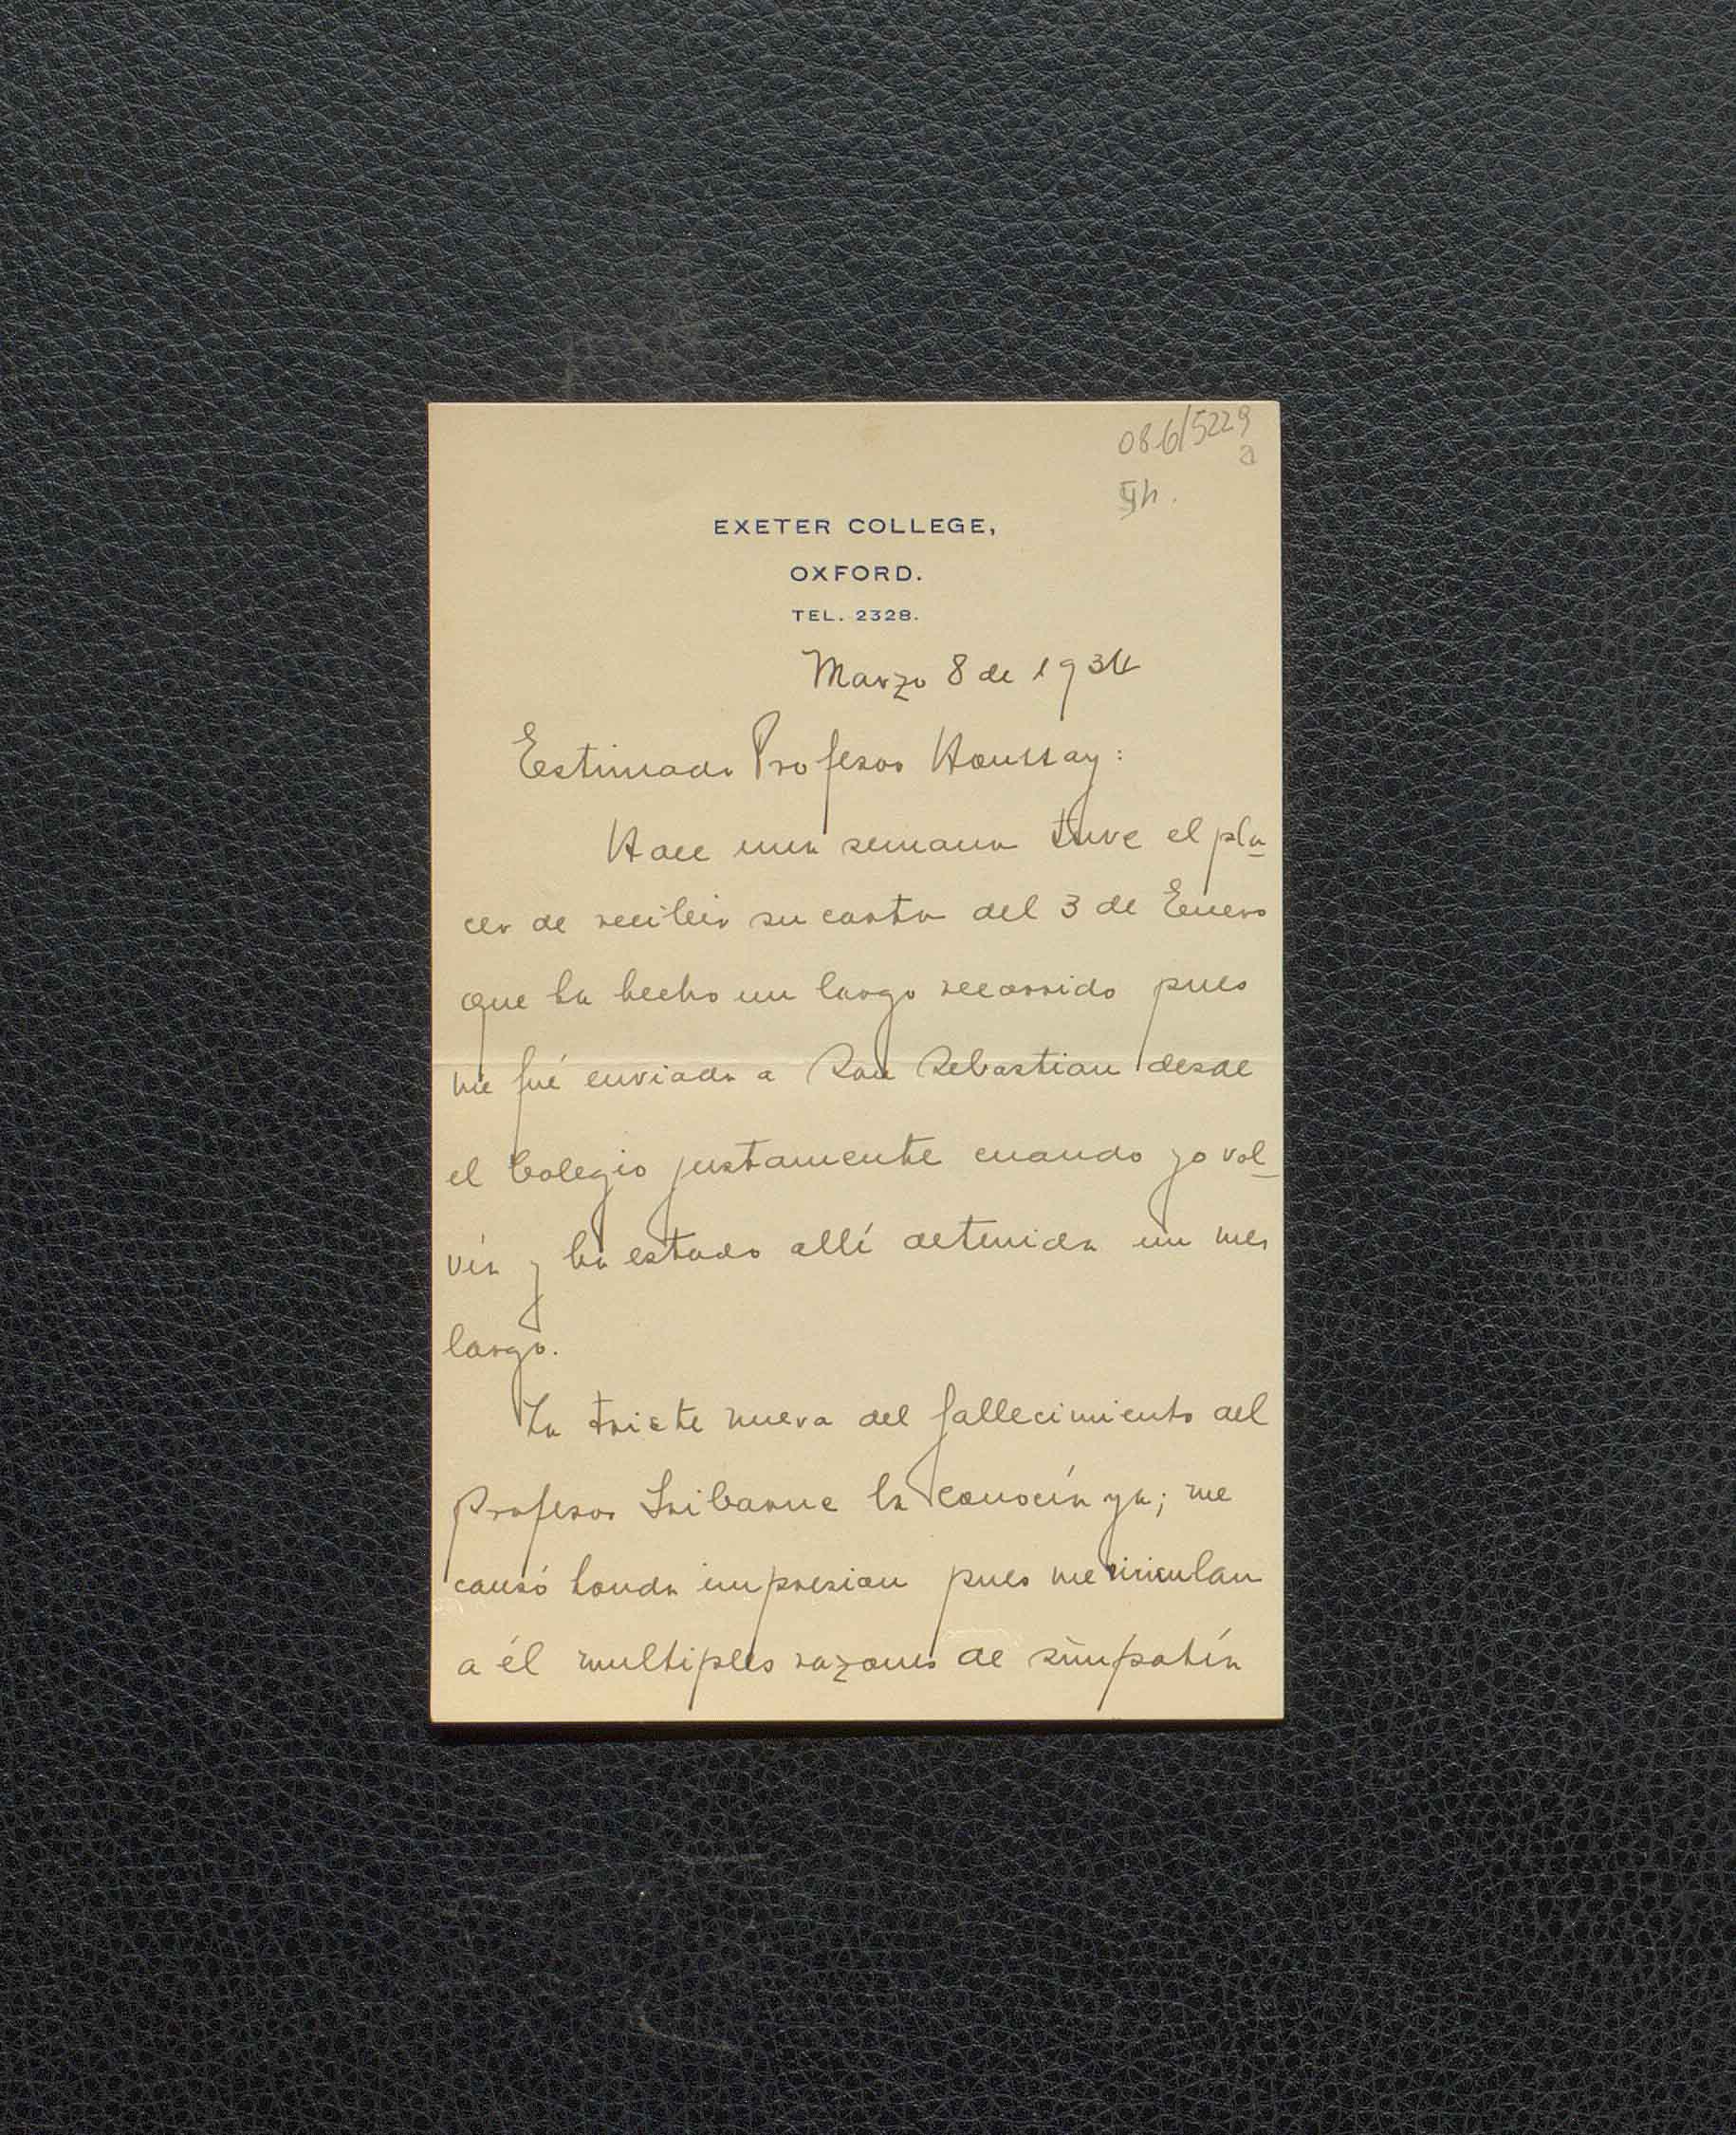 08.6/5229
a
5h.
EXETER COLLEGE,
OXFORD.
TEL. 2328.
Marzo 8 de 1934
Estimado Profesor Houssay:
Hace una semana tuve el pla-
cer de recibir su carta del 3 de Enero
que ha hecho un largo recorrido pues
me fué enviada a San Sebastian desde
el Colegio justamente cuando yo vol-
vía y ha estado allí detenida un mes
largo.
La triste nueva del fallecimiento del
Profesor Iribarne la conocía ya; me
causó honda impresion pues me vinculan
a él multiples razones de simpatía